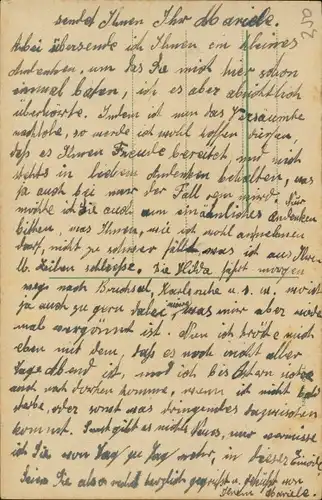 sendet Ihnen Ihr Mariele.
Anbei übersende ich Ihnen ein kleines
Andenken, um das Sie mich hier schon
einmal baten, ich es aber absichtlich
überhörte. Indem ich nun das Versäumte
nachhole, so werde ich wohl hoffen dürfen,
daß es Ihnen Freude bereitet, und mich
stets in liebem Andenken behalten, was
ja auch bei mir der Fall sein wird. Für
möchte ich Sie auch um ein ähnliches Andenken
bitten, was Ihnen, wie ich wohl annehmen
darf, nicht zu schwer fällt, was ich aus Ihren
l. Zeilen schließe. Die Hilda fährt morgen
weg nach Bruchsal, Karlsruhe u. s. w., wo ich
ja auch zu gern dabei wäre, was mir aber
mal vergönnt ist. Nun ich tröste mich
eben mit dem, daß es noch nicht aller
Tage Abend ist, und ich bis Ostern
auch noch dorthin komme, wenn ich nicht
sterbe, oder sonst was dringendes dazwischen
kommt. Sonst gibt es nichts Neues, und vermisse
ich Sie von Tag zu Tag mehr, in dieser
Seien Sie also recht herzlich gegrüßt u. geküßt von
Ihrem Mariele.